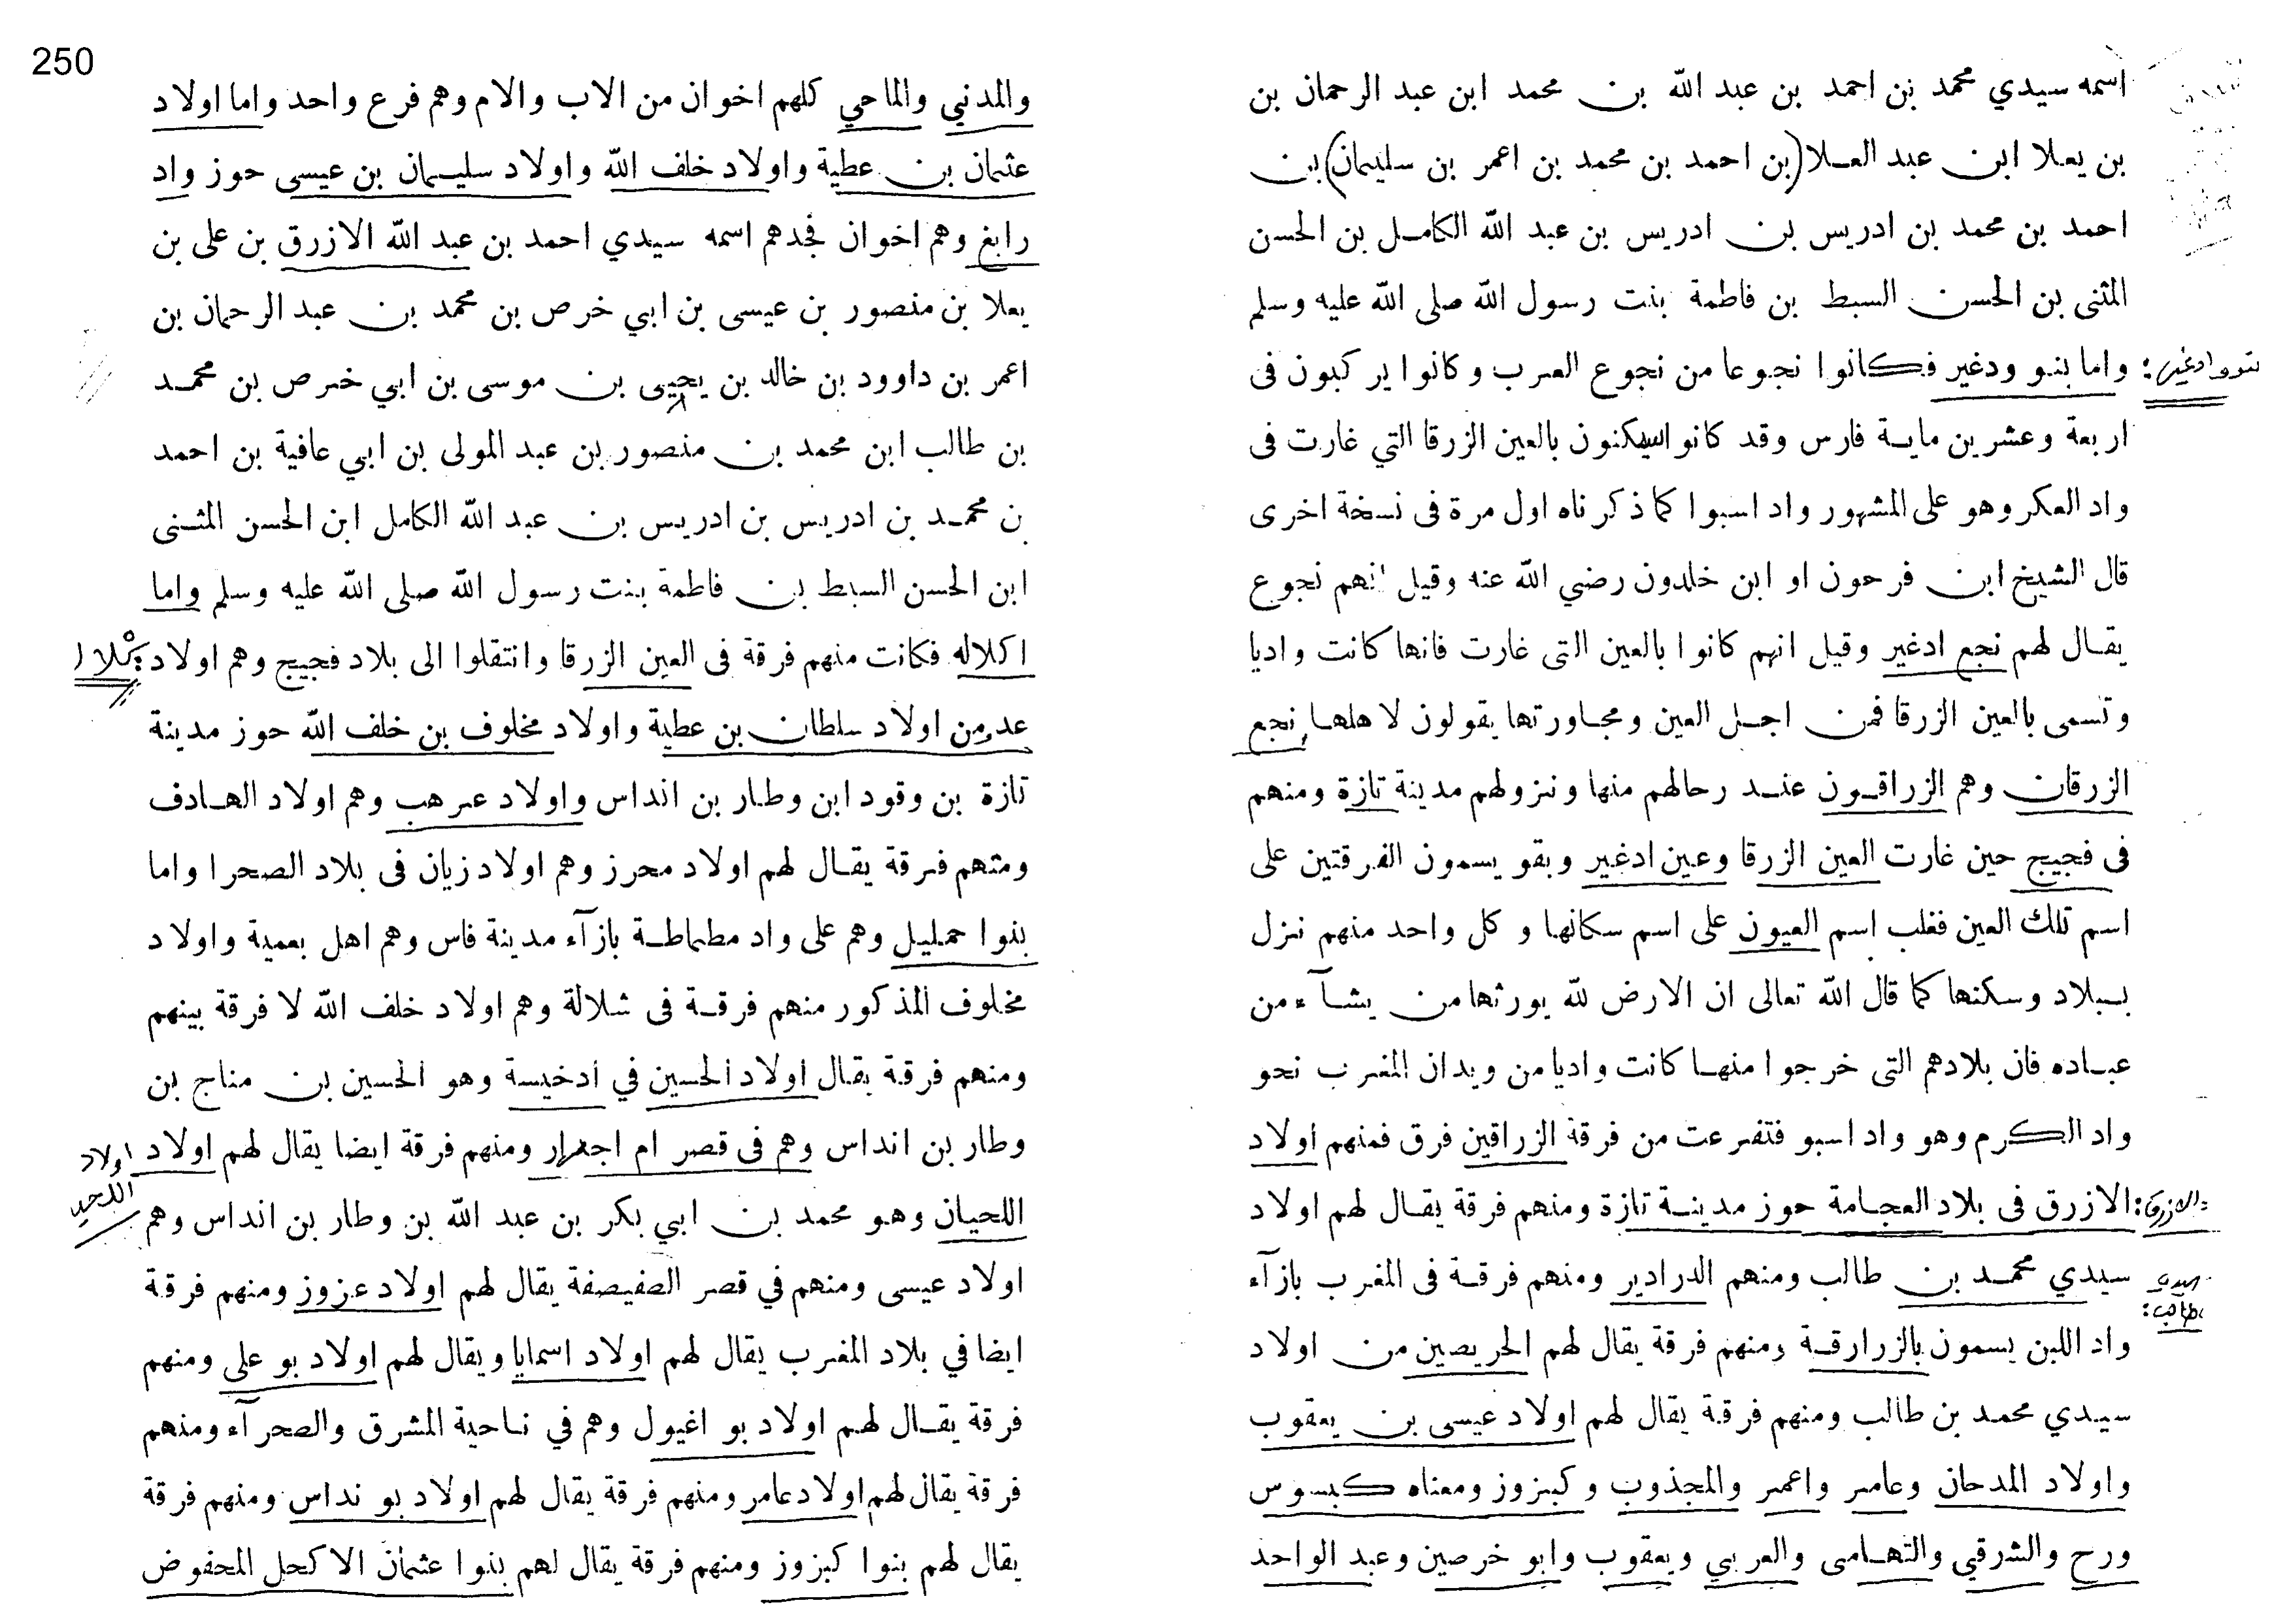 250
اسمه سيدي محمد بن احمد بن عبد الله بن محمد ابن عبد الرحمان بن
بن يعلا ابن عبد العلا (بن احمد بن محمد بن اعمر بن سليمان) بن
احمد بن محمد بن ادريس بن ادريس بن عبد الله الكامل بن الحسن
المثنى بن الحسن السبط بن فاطمة بنت رسول الله صلى الله عليه وسلم
واما بنو ودغير فكانوا نجوعا من نجوع العرب وكانوا يركبون فى
اربعة وعشرين ماية فارس وقد كانوا يسكنون بالعين الزرقا التي غارت فى
واد العكر وهو على المشهور واد اسبوا كما ذكرناه اول مرة فى نسخة اخرى
قال الشيخ ابن فرحون او ابن خلدون رضي الله عنه وقيل انهم نجوع
يقال لهم نجع ادغير وقيل انهم كانوا بالعين التى غارت فانها كانت واديا
وتسمى بالعين الزرقا فمن اجل العين ومجاورتها يقولون لاهلها نجع
الزرقان وهم الزراقون عند رحالهم منها ونزولهم مدينة تازة ومنهم
فى فجيج حين غارت العين الزرقا وعين ادغير وبقو يسمون الفرقتين على
اسم تلك العين فغلب اسم العيون على اسم سكانها وكل واحد منهم نزل
ببلاد وسكنها كما قال الله تعالى ان الارض لله يورثها من يشآء من
عباده فان بلادهم التى خرجوا منها كانت واديا من ويدان المغرب نحو
واد الكرم وهو واد اسبو فتفرعت من فرقة الزراقين فرق فمنهم اولاد
الازرق فى بلاد العجامة حوز مدينة تازة ومنهم فرقة يقال لهم اولاد
سيدي محمد بن طالب ومنهم الدرادير ومنهم فرقة فى المغرب بازآء
واد اللبن يسمون بالزرارقة ومنهم فرقة يقال لهم الحريصين من اولاد
سيدي محمد بن طالب ومنهم فرقة يقال لهم اولاد عيسى بن يعقوب
واولاد المدحان وعامر واعمر والمجذوب وكبزوز ومعناه كبسوس
ورح والشرقي والتهامى والعربي ويعقوب وابو خرصين وعبد الواحد
بنوا ودغير:
الازرق:
طالب:
والمدني والماحي كلهم اخوان من الاب والام وهم فرع واحد واما اولاد
عثمان بن عطية واولاد خلف الله واولاد سليمان بن عيسى حوز واد
رابغ وهم اخوان فجدهم اسمه سيدي احمد بن عبد الله الازرق بن على بن
يعلا بن منصور بن عيسى بن ابي خرص بن محمد بن عبد الرحمان بن
اعمر بن داوود بن خالد بن يحيى بن موسى بن ابي خرص بن محمد
بن طالب ابن محمد بن منصور بن عبد المولى بن ابي عافية بن احمد
بن محمد بن ادريس بن ادريس بن عبد الله الكامل ابن الحسن المثنى
ابن الحسن السبط بن فاطمة بنت رسول الله صلى الله عليه وسلم واما
اكلاله فكانت منهم فرقة فى العين الزرقا وانتقلوا الى بلاد فجيج وهم اولاد
عدو من اولاد سلطان بن عطية واولاد مخلوف بن خلف الله حوز مدينة
تازة بن وقود ابن وطار بن انداس واولاد عرهب وهم اولاد الهادف
ومنهم فرقة يقال لهم اولاد محرز وهم اولاد زيان فى بلاد الصحرا واما
بنوا حمليل وهم على واد مطماطة بازآء مدينة فاس وهم اهل بعمية واولاد
مخلوف المذكور منهم فرقة فى شلالة وهم اولاد خلف الله لا فرقة بينهم
ومنهم فرقة يقال اولاد الحسين في ادخيسة وهو الحسين بن مناج بن
وطار بن انداس وهم فى قصر ام ومنهم فرقة ايضا يقال لهم اولاد
اللحيان وهو محمد بن ابي بكر بن عبد الله بن وطار بن انداس وهم
اولاد عيسى ومنهم في قصر الصفيصفة يقال لهم اولاد عزوز ومنهم فرقة
ايضا في بلاد المغرب يقال لهم اولاد اسمايا ويقال لهم اولاد بو على ومنهم
فرقة يقال لهم اولاد بو اغيول وهم في ناحية المشرق والصحرآء ومنهم
فرقة يقال لهم اولاد عامر ومنهم فرقة يقال لهم اولاد بو نداس ومنهم فرقة
يقال لهم بنوا كبزوز ومنهم فرقة يقال لهم بنوا عثمان الاكحل المحفوض
اولاد